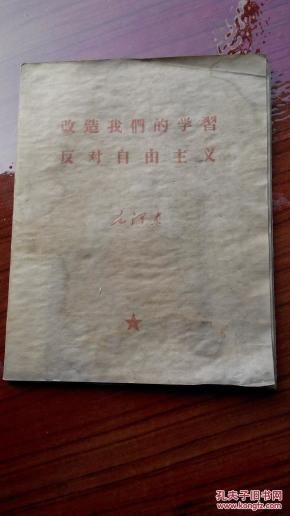 改造我們的学習
反对自由主义
毛泽东
孔夫子旧书网
www.kongfz.com